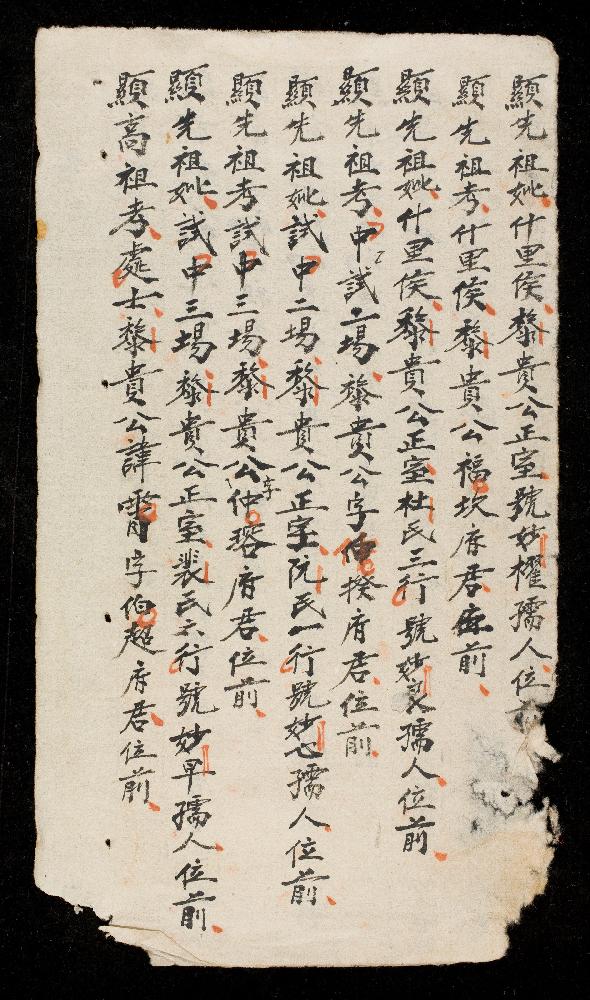 顯先祖妣什里侯黎貴公正室號妙櫂孺人位
顯先祖考什里侯黎貴公福坎府君位前
顯先祖妣什里侯黎貴公正室杜氏三行號妙孺人位前
顯先祖考中試二場黎貴公字仲揆府君位前
顯先祖妣試中二場黎貴公正室阮氏一行號妙心孺人位前
顯先祖考試中三場黎貴公字仲瑢府君位前
顯先祖妣試中三場黎貴公正室裴氏六行號妙早孺人位前
顯高祖考處士黎貴公諱霄字伯超府君位前